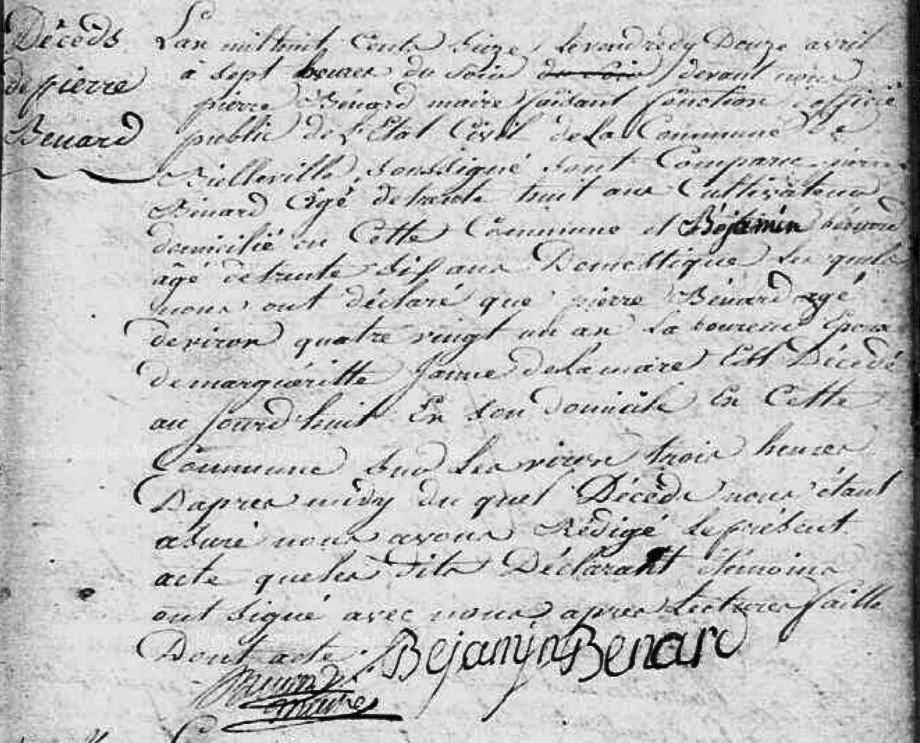 Décéds
de pierre
Benard
L'an mil huit Cents Seize, le vendredy Douze avril
à sept heures du Soir du soir, devant nous
pierre Bénard maire faisant fonction d'officié
public de l'Etat Civil de La Commune de
Bielleville, soussigné sont Comparu pierre
Bénard Agé de trente huit ans Cultivateur
domicilié en Cette Commune et Béjamin benard
âgé de trente Six ans Domestique Les quels
nous ont déclaré que pierre Bénard agé
deviron quatre vingt un an La boureur Epoux
de marguéritte Janne delamaire Est Décédé
au Jourd'huit En son domicile En Cette
Commune Sur Les viron trois heures
D'apres midy du quel Décéde nous étant
asuré nous avons Rédigé le présent
acte que les dits Déclarant témoins
ont signé avec nous apres Lectures faitte
Dont acte. Bejamin Benard
Benard
maire